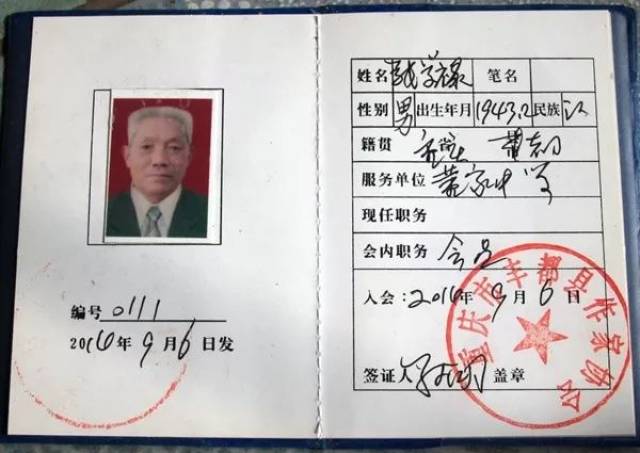 编号 0111
2016年9月6日发
姓名 笔名
性别 男 出生年月 1943.2 民族 汉
籍贯
服务单位 董家中学
现任职务
会内职务 会员
入会：2016年9月6日
签证人 盖章
重庆市丰都县作家协会